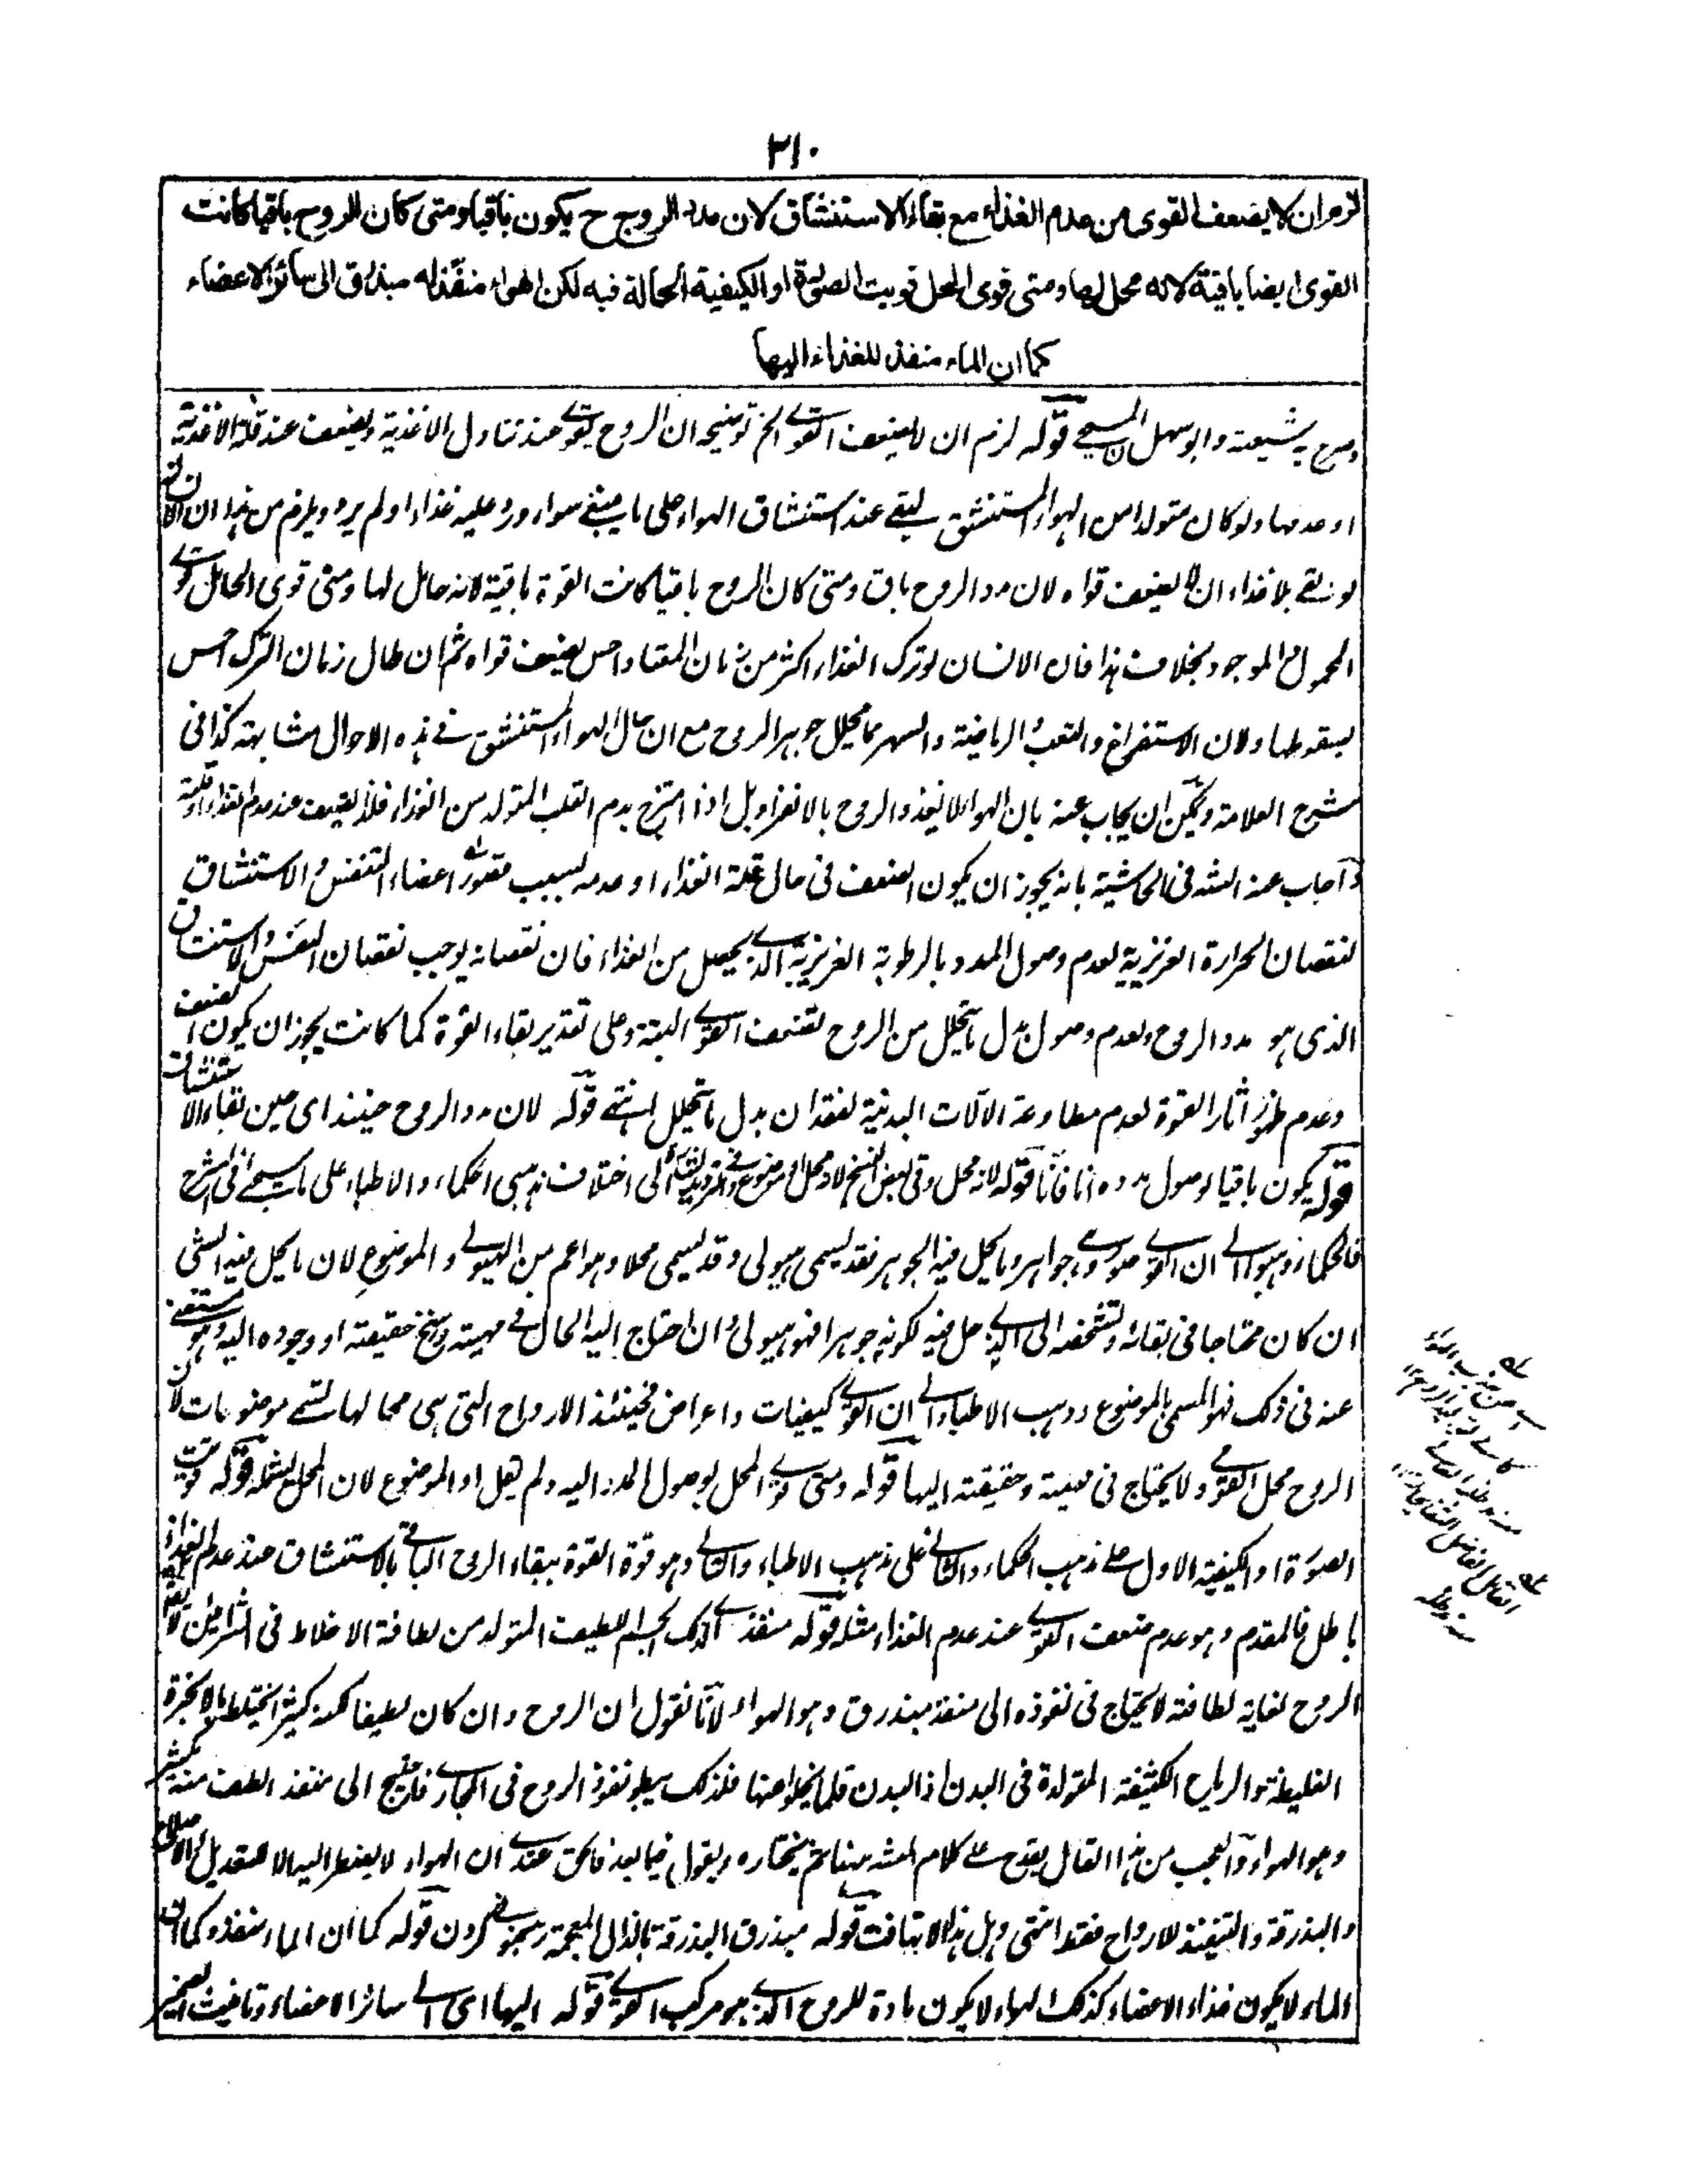 ٢١٠
لزم ان لا يضعف القوى من عدم الغذاء مع بقاء الاستنشاق لان مدد الروح ح يكون باقيا ومتى كان الروح باقيا كانت
القوى ايضا باقية لانه محل لها ومتى قوى المحل قويت الصورة او الكيفية الحالة فيه لكن الهواء منفذ له مبذرق الى سائر الاعضاء
كما ان الماء منفذ للغذاء اليها
وابو سهل المسيحى قوله لزم ان لا يضعف القوى الخ توضيحه ان الروح يقوى عند تناول الاغذية ويضعف عند قلة الاغذية
او عدمها ولو كان متولدا من الهواء المستنشق لبقى عند استنشاق الهواء على ما ينبغى سواء ورد عليه غذاء او لم يرد ويلزم من هذا ان الانسان
لو بقى بلا غذاء ان لا يضعف قواه لان مدد الروح باق ومتى كان الروح باقيا كانت القوة باقية لانه حامل لها ومتى قوى الحامل قوى
المحمول والموجود بخلاف هذا فان الانسان لو ترك الغذاء اكثر من زمان المعتاد احس بضعف قواه ثم ان طال زمان الترك احس
بسقوطها ولان الاستفراغ والتعب والرياضة والسهر مما يحلل جوهر الروح مع ان حال الهواء المستنشق فى هذه الاحوال متشابهة كذا فى
شرح العلامة ويمكن ان يجاب عنه بان الهواء لا يغذو الروح بالانفراد بل اذا امتزج بدم القلب المتولد من الغذاء فلذا يضعف عند عدم الغذاء او قلته
واجاب عنه الشه فى الحاشية بانه يجوز ان يكون الضعف فى حال قلة الغذاء او عدمه لسبب قصور اعضاء التنفس والاستنشاق
لنقصان الحرارة الغريزية لعدم وصول المدد بالرطوبة الغريزية الذى يحصل من الغذاء فان نقصانه يوجب نقصان التنفس والاستنشاق
الذى هو مدد الروح ولعدم وصول بدل ما يتحلل من الروح تضعف القوى البتة وعلى تقدير بقاء القوة كما كانت يجوز ان يكون الضعف
وعدم ظهور اثار القوة لعدم مطاوعة الآلات البدنية لفقدان بدل ما يتحلل انتهى قوله لان مدد الروح حينئذ اى حين بقاء الاستنشاق
قوله يكون باقيا لوصول مدده انا فانا قوله لانه محل وفى بعض النسخ لانه محل او موضوع الى اختلاف مذهبى الحكماء والاطباء على ما سيجئ فى الشرح
فالحكماء ذهبوا الى ان القوى صور وجواهر وما يحل فيه الجوهر فقد يسمى هيولى وقد يسمى محلا وهو اعم من الهيولى والموضوع لان ما يحل فيه الشئ
ان كان محتاجا فى بقائه وتشخصه الى الذى حل فيه لكونه جوهرا فهو هيولى وان احتاج اليه الحال فى مهيته وسنخ حقيقته او وجوده اليه وهو مستغن
عنه فى ذلك فهو المسمى بالموضوع وذهب الاطباء الى ان القوى كيفيات واعراض فحينئذ الارواح التى هى محالها تسمى موضوعات لان
الروح محل القوى ولا يحتاج فى مهيته وحقيقته اليها قوله ومتى قوى المحل بوصول المدد اليه ولم يقل او الموضوع لان المحل يشمله قوله قويت
الصورة او الكيفية الاول على مذهب الحكماء والثانى على مذهب الاطباء والتالى وهو قوة القوة ببقاء الروح الباقى بالاستنشاق عند عدم الغذاء
باطل فالمقدم وهو عدم ضعف القوى عند عدم الغذاء مثله قوله منفذ الجسم اللطيف المتولد من لطافة الاخلاط فى الشرايين
الروح لغاية لطافته لا يحتاج فى نفوذه الى منفذ مبذرق وهو الهواء لانا نقول ان الروح وان كان لطيفا لكنه كثيرا يختلط بالابخرة
الغليظة والرياح الكثيفة المتولدة فى البدن اذ البدن قلما يخلو عنها فلذلك يبطؤ نفوذ الروح فى المجارى فاحتيج الى منفذ الطف منه
وهو الهواء والعجب من هذا القائل يقدح على كلام الشه ههنا ثم يختاره ويقول فيما بعد فالحق عندى ان الهواء لا يضطر اليه الا لتعديل
والبذرقة والتنفيذ للارواح فقط انتهى وهل هذا الا تهافت قوله مبذرق البذرقة بالذال المعجمة كردن قوله كما ان الماء منفذ وكما ان
الماء لا يكون غذاء الاعضاء كذلك الهواء لا يكون مادة للروح الذى هو مركب القوى قوله اليها اى الى سائر الاعضاء وتانيث الضمير